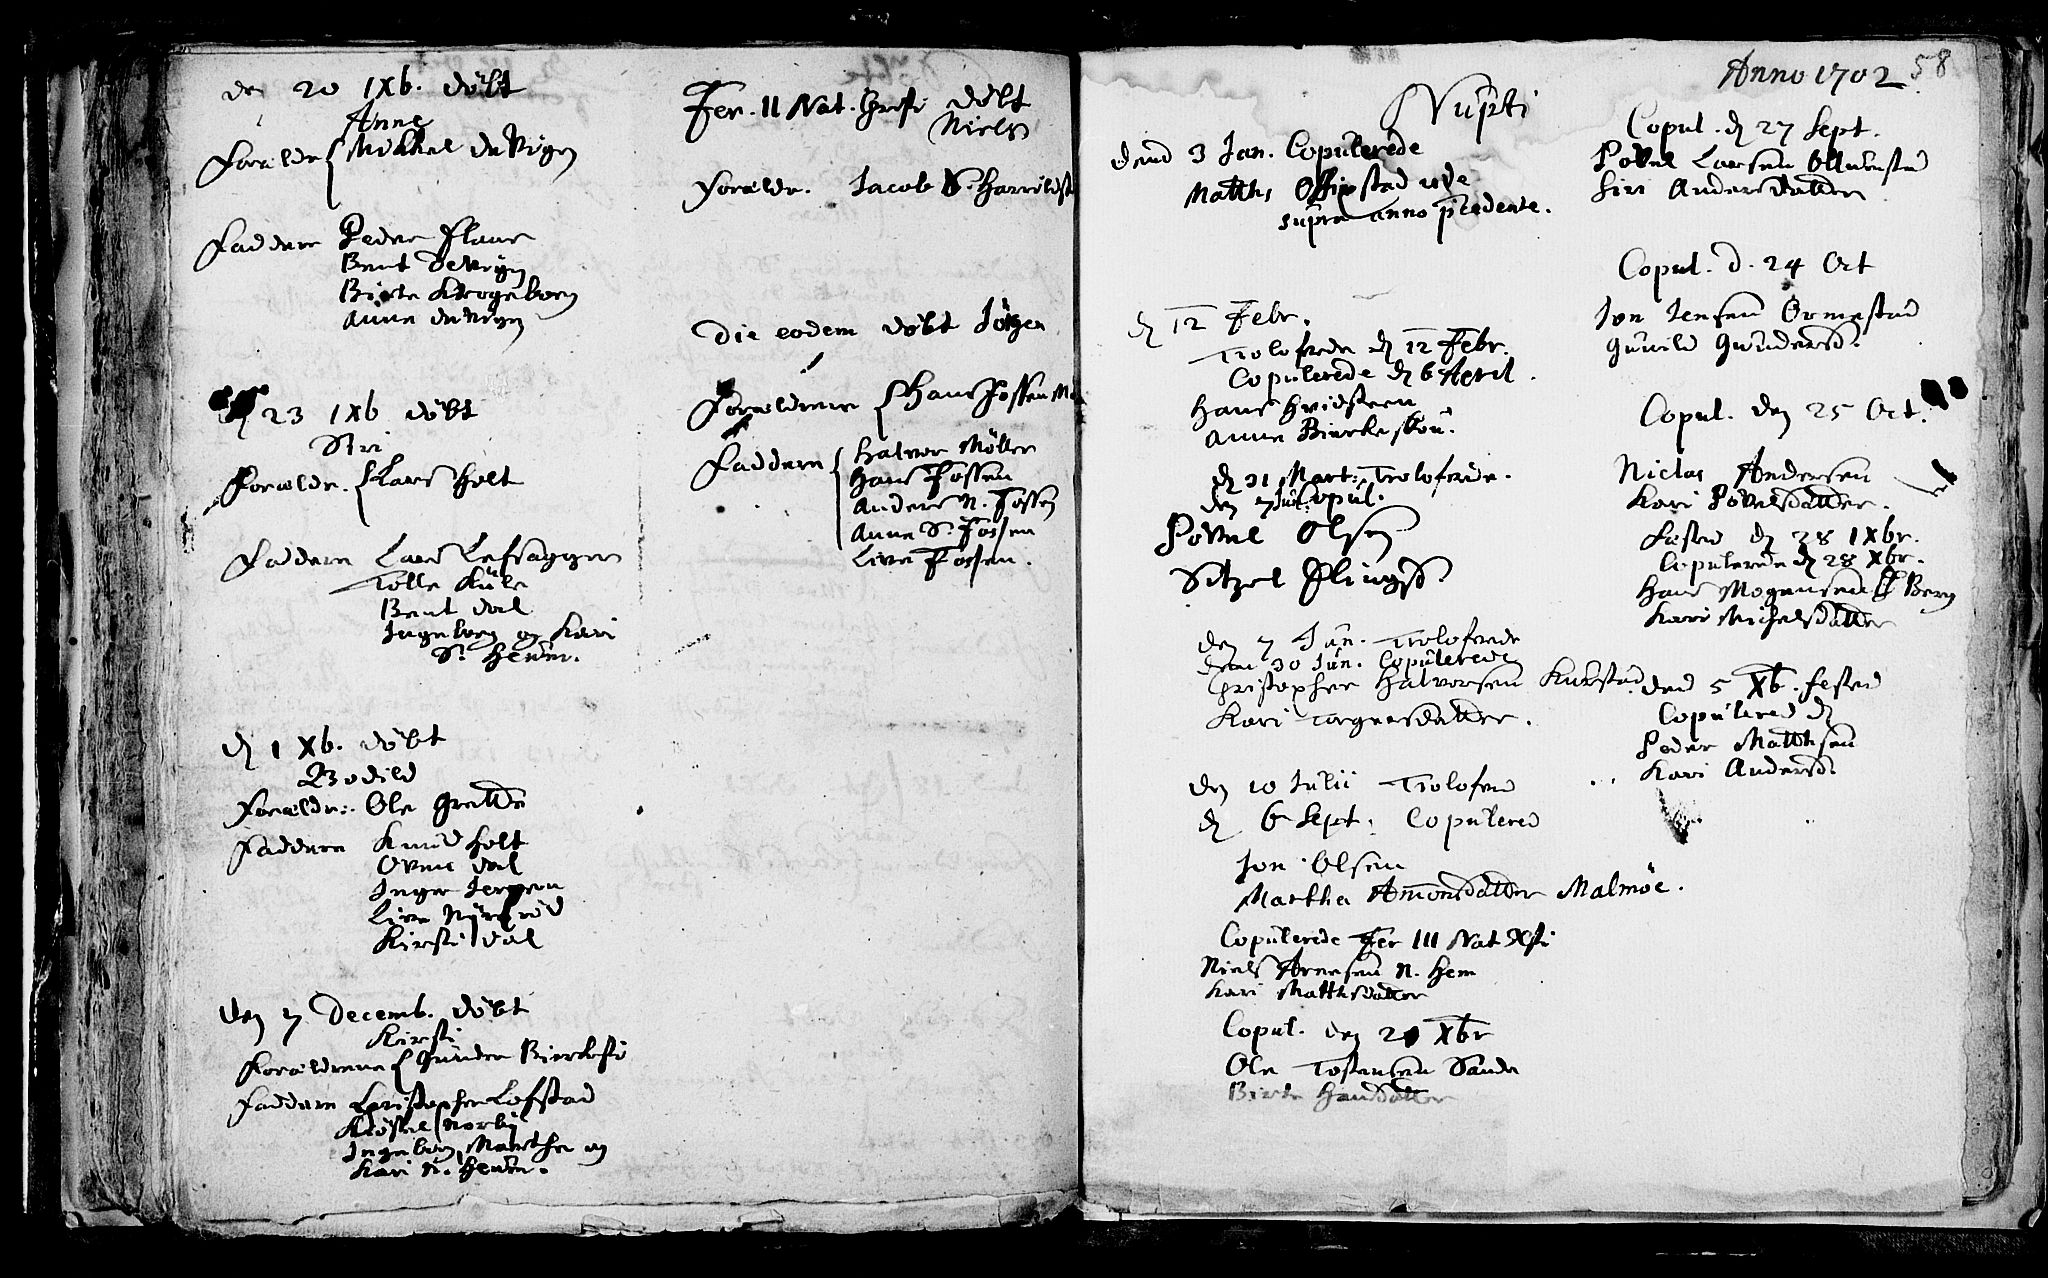 den 20 IXb. døbt
Anne
Forældr Mikkel
Faddere Peder
Bent
Birte
Anne
23 IXb døbt
Siri
Forældr. Lars Holt
Faddere Lars
Tolle
Bent Dal
Ingeborg og Kari
S. Heum.
d 1 Xb. døbt
Bodild
Forældr: Ole Grette
Faddere Knud Holt
Oven Dal
Inger
Live
Kirsti Dal
den 7 Decemb. døbt
Kirsti
Forældrene Gunder
Faddere Christopher Lofstad
Norby
Ingeborg, Marthe og
Kari N. Heum.
Fer. II Nat. Christi døbt
Niels
Forældr. Jacob S. Harrildst
Die eodem døbt Jørgen
Forældrene Hans Fossen
Faddere Halvor Møller
Hans Fossen
Anders N. Fossen
Anne S. Fossen
Live Fossen.
Anno 1702 58
Nupti
dend 3 Jan. Copulerede
Matths vide
supra Anno præcedente.
d 12 Febr.
Trolofvede d 12 Febr.
Copulerede d 6 April.
Hans Hvidsteen
Anne Birkeskou.
d 31 Mart: Trolofvede.
den 7 Jul. Copul.
Povel Olsen
Sitzel
den 7 Jun. Trolofvede
dend 30 Jun. Copulerede
Christopher Halvorsen
Kari
den 10 Julii Trolofved
d 6 Sept. Copulered
Jon Olsen
Martha Amonsdatter Malmöe.
Copulerede Fer III Nat Xsti
Niels Arnesen N. Hem
Kari Mathisdatter
Copul. den 21 Xbr
Ole Tostensen Sande
Birte Hansdatter
Copul. d 27 Sept.
Povel Larsen
Siri Andersdatter
Copul. d. 24 Oct
Jon Jensen Ormestad
Gunild Gundersd.
Copul. den 25 Oct.
Niclas Andersen
Kari Povelsdatter.
Fested d 28 IXbr.
Copulerede d 28 Xbr.
Hans Mogensen Berg
Kari Michelsdatter
dend 5 Xb. fested
Copulered d
Peder Matthsen
Kari Andersd.